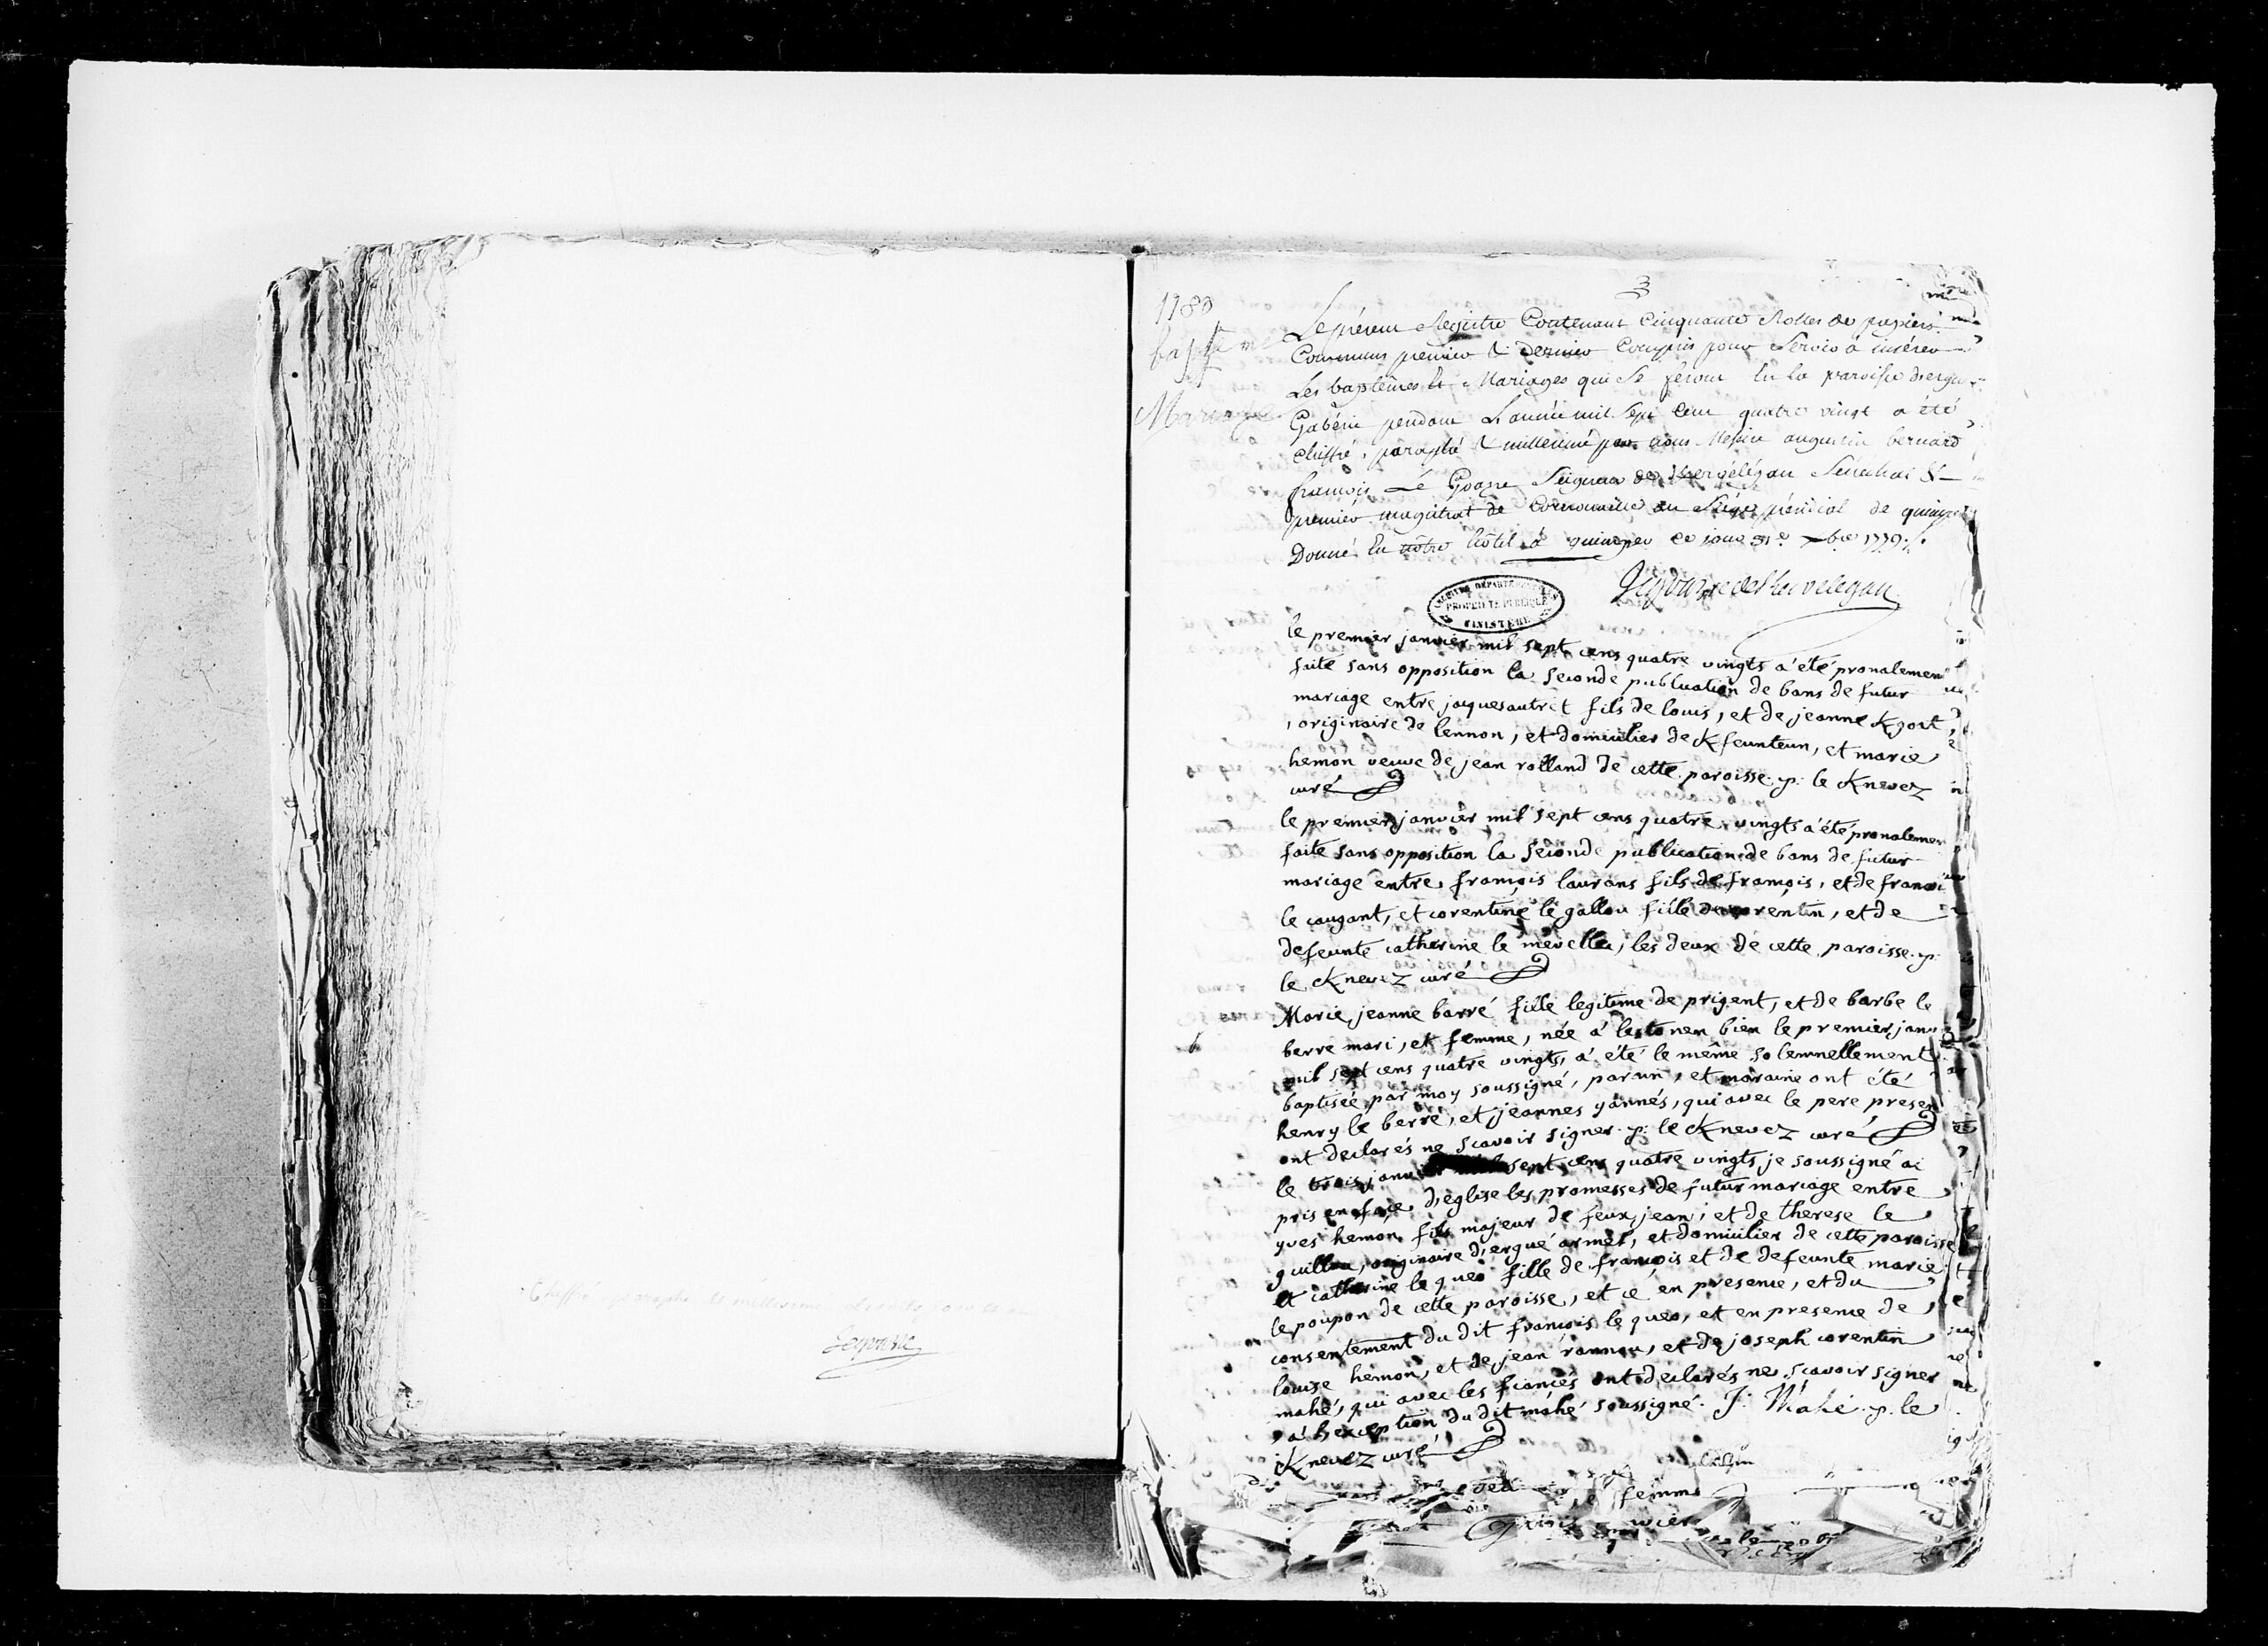 Legouazre
1780
baptême
Mariage
Le présent Registre Contenant Cinquante Rolles de papiers
Communs premier & dernier Compris pour Servir à insérer
Les baptêmes & Mariages qui Se feront En la paroisse d'ergué
Gabéric pendant L'année mil Sept Cent quatre vingt a été
chiffré, paraphé & millesimé par nous Messire augustin bernard
françois Le Goazre Seigneur de Kervélégan Sénéchal &
premier magistrat de Cornouaille au Siège présidial de quimper
Donné En nôtre hôtel à quimper ce jour 31e xbre 1779 ./.
Legoazre de Kervelegan
ARCHIVES DÉPARTEMENTALES
PROPRIÉTÉ PUBLIQUE
FINISTÈRE
le premier janvier mil sept cens quatre vingts a été pronalement
faite sans opposition la seconde publication de bans de futur
mariage entre jacques autret fils de louis, et de jeanne Kgoat,
, originaire de lennon, et domicilier de Kfeunteun, et marie
hemon veuve de jean rolland de cette paroisse. p: le Knevez
curé
le premier janvier mil sept cens quatre vingts a été pronalement
faite sans opposition la seconde publication de bans de futur
mariage entre françois laurans fils de françois, et de
le caugant, et corentine le gallou fille de corentin, et de
defeunte catherine le mevellec, les deux de cette paroisse. p:
le Knevez curé
Marie jeanne barré fille legitime de prigent, et de barbe le
berre mari, et femme, née à lestonen bien le premier janv
b
mil sept cens quatre vingts, a été le même solemnellement
baptisée par moy soussigné, parain, et maraine ont été
henry le berré, et jeannes yannés, qui avec le pere present
ont declarés ne scavoir signer. p: le Knevez curé
le trois janvier sept cens quatre vingts je soussigné ai
pris en face d'eglise les promesses de futur mariage entre
yves hemon fils majeur de feux jean, et de therese le
guillou, originaire d'ergué armel, et domicilier de cette paroisse
et catherine le queo fille de françois et de defeunte marie
le poupon de cette paroisse, et ce en presence, et du
consentement du dit françois le queo, et en presence de
louise hemon, et de jean rannou, et de joseph corentin
mahé, qui avec les fiancés ont declarés ne scavoir signer
, à l'exception du dit mahé soussigné. J: Mahé. p. le
Knevez curé
femme